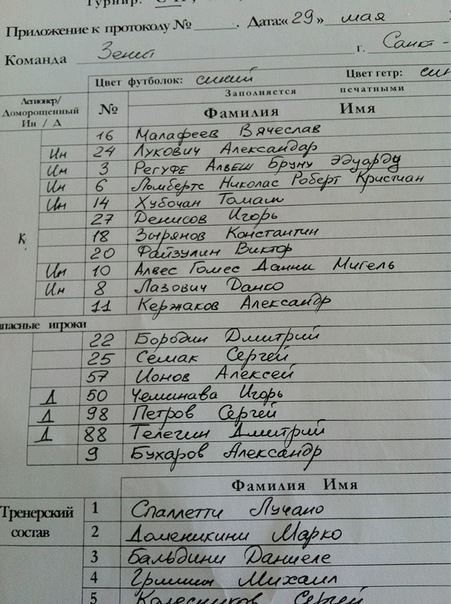 Турнир:
Приложение к протоколу №      . Дата:« 29 » мая
Команда Зенит г. Санкт-
Легионер/ Доморощенный Ин / Д № Цвет футболок: синий Цвет гетр: син
Заполняется печатными
Фамилия Имя
16 Малафеев Вячеслав
Ин 24 Лукович Александар
Ин 3 Регуфе Алвеш Бруну Эдуарду
Ин 6 Ломбертс Николас Роберт Кристиан
Ин 14 Хубочан Томаш
27 Денисов Игорь
К 18 Зырянов Константин
20 Файзулин Виктор
Ин 10 Алвес Гомес Данни Мигель
Ин 8 Лазович Данко
11 Кержаков Александр
апасные игроки
22 Бородин Дмитрий
25 Семак Сергей
57 Ионов Алексей
50 Чеминава Игорь
Д 98 Петров Сергей
Д 88 Телегин Дмитрий
9 Бухаров Александр
Фамилия Имя
Тренерский состав
1 Спаллетти Лучано
2 Доменикини Марко
3 Бальдини Даниеле
4 Гришин Михаил
5 Колесников Сергей